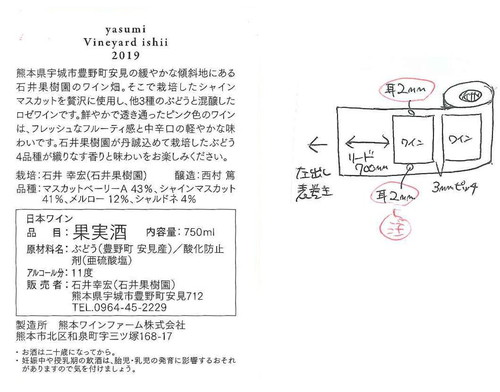 yasumi
Vineyard ishii
2019
熊本県宇城市豊野町安見の緩やかな傾斜地にある
石井果樹園のワイン畑。そこで栽培したシャイン
マスカットを贅沢に使用し、他3種のぶどうと混醸した
ロゼワインです。鮮やかで透き通ったピンク色のワイン
は、フレッシュなフルーティ感と中辛口の軽やかな味
わいです。石井果樹園が丹誠込めて栽培したぶどう
4品種が織りなす香りと味わいをお楽しみください。
栽培：石井 幸宏(石井果樹園)　醸造：西村 篤
品種：マスカットベーリーA 43%、シャインマスカット
41%、メルロー 12%、シャルドネ 4%
日本ワイン
品　目：果実酒　内容量：750ml
原材料名：ぶどう(豊野町 安見産)／酸化防止
剤(亜硫酸塩)
アルコール分：11度
販 売 者：石井幸宏(石井果樹園)
熊本県宇城市豊野町安見712
TEL.0964-45-2229
製造所　熊本ワインファーム株式会社
熊本市北区和泉町字三ツ塚168-17
・お酒は二十歳になってから。
・妊娠中や授乳期の飲酒は、胎児・乳児の発育に影響するおそれ
がありますので気を付けましょう。
耳2mm
ワイン
ワイン
リード
700mm
左出し
表巻き
3mmピッチ
耳2mm
注